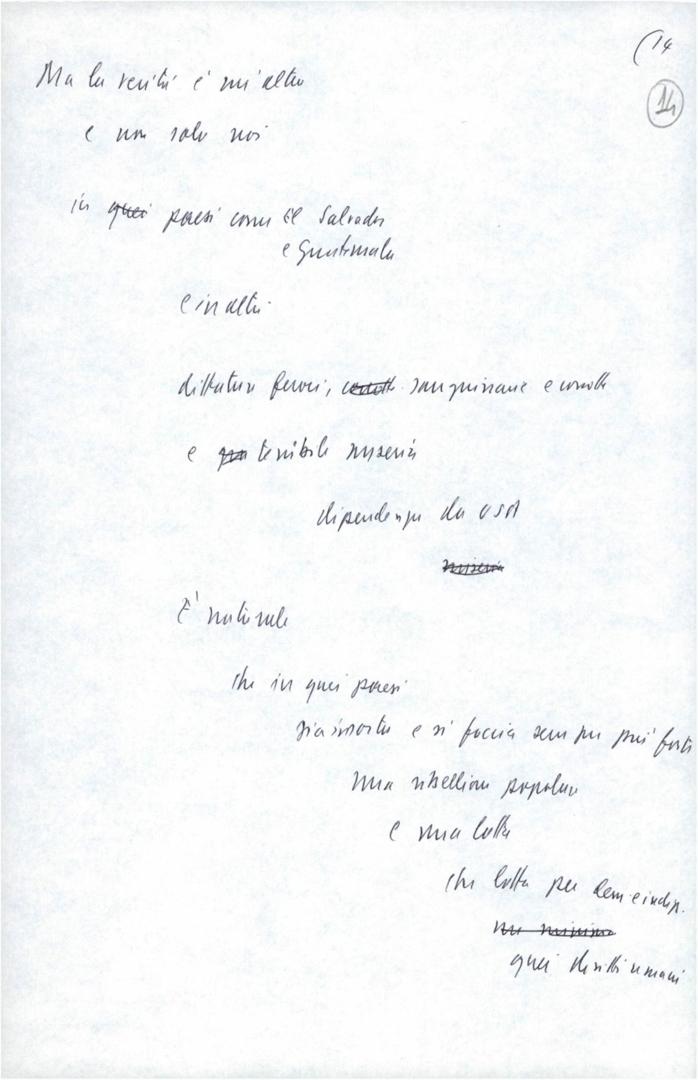 (14
14
Ma la verità è un'altra
e non solo noi
in quei paesi come El Salvador
e Guatemala
e in altri
dittature feroci, corrotte sanguinarie e corrotte
e terribile miseria
dipendenza da USA
miseria
È naturale
che in quei paesi
sia insorta e si faccia sempre più forte
una ribellione popolare
e una lotta
che lotta per dem. e indip.
quei diritti umani